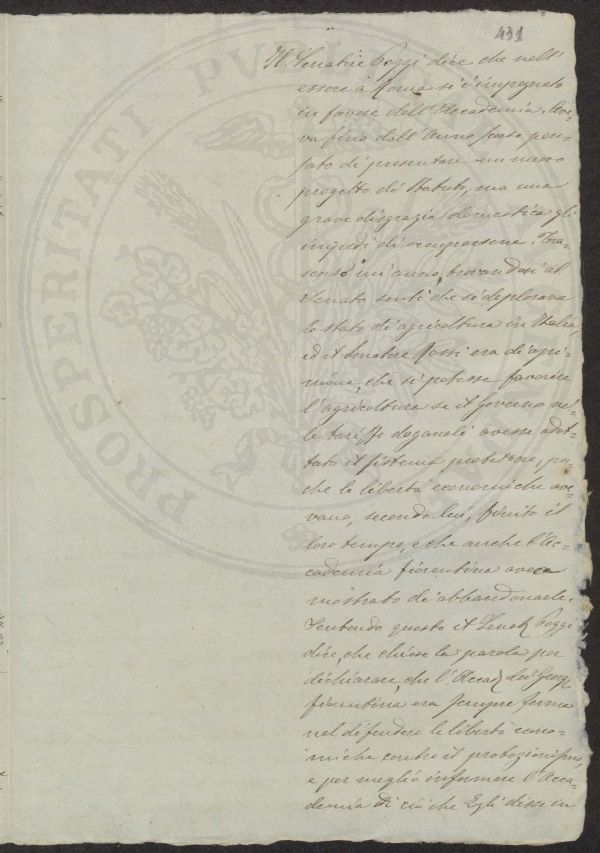 431
Il Senatore Poggi dice che nell'
essere a Roma si è impegnato
in favore dell'Accademia. Ave-
va fino dall'Anno scorso pen-
sato di presentare un nuovo
progetto di Statuto, ma una
grave disgrazia domestica gli
impedì di occuparsene. Tra-
scorso un'anno, trovandosi al
Senato sentì che si deplorava
lo stato di agricoltura in Italia,
ed il Senatore Rossi era di opi-
nione, che si potesse favorire
l'agricoltura se il Governo nel-
le tariffe doganali avesse adot-
tato il sistema protettore, poi
che le libertà economiche ave-
vano, secondo lui, finito il
loro tempo, e che anche l'Ac-
cademia fiorentina aveva
mostrato di abbandonarle.
Sentendo questo il Senat. Poggi
dice, che chiese la parola per
dichiarare, che l'Accad. dei Georg.
fiorentina era sempre ferma
nel difendere le libertà econo-
miche contro il protezionismo,
e per meglio informare l'Acca-
demia di ciò che Egli disse in
PROSPERITATI PUBLICAE